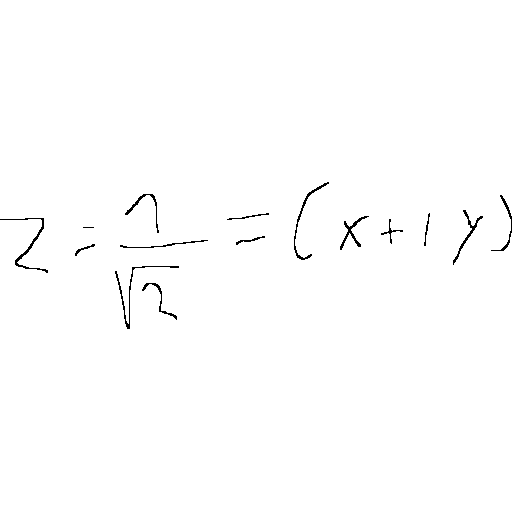 z = \frac{1}{\sqrt{2}} = (x + 1 y)